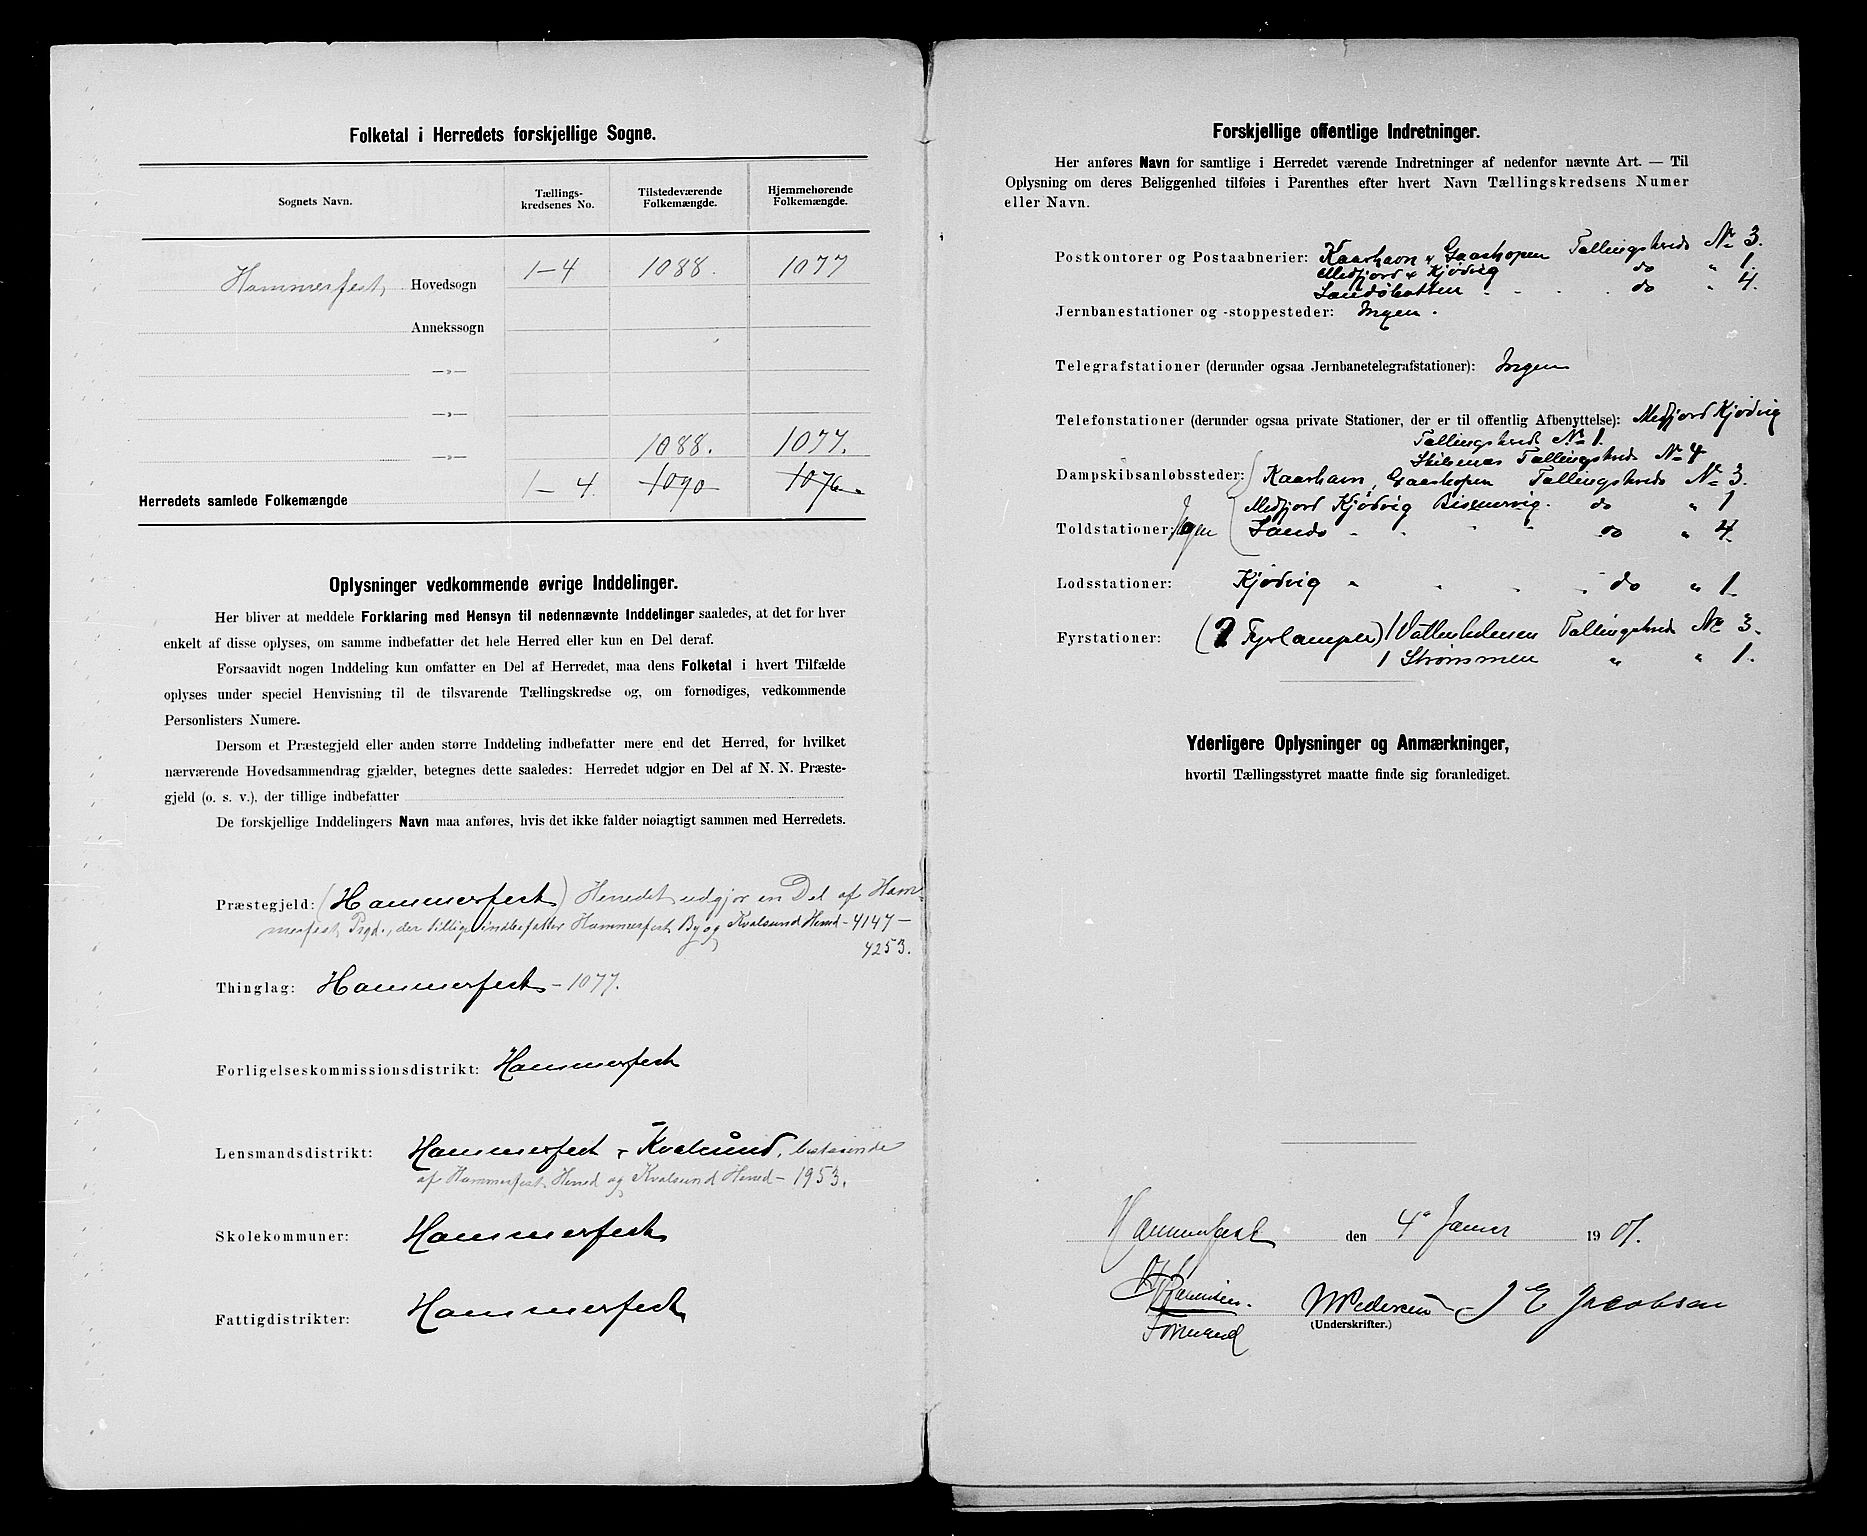 Folketal i Herredets forskjellige Sogne.
Sognets Navn. Tællings-kredsenes No. Tilstedeværende Folkemængde. Hjemmehørende Folkemængde.
Hammerfest Hovedsogn 1-4 1088. 1077
Annekssogn
—»—
—»—
—»— 1088. 1077.
Herredets samlede Folkemængde 1-4. 1090 1076
Oplysninger vedkommende øvrige Inddelinger.
Her bliver at meddele Forklaring med Hensyn til nedennævnte Inddelinger saaledes, at det for hver
enkelt af disse oplyses, om samme indbefatter det hele Herred eller kun en Del deraf.
Forsaavidt nogen Inddeling kun omfatter en Del af Herredet, maa dens Folketal i hvert Tilfælde
oplyses under speciel Henvisning til de tilsvarende Tællingskredse og, om fornødiges, vedkommende
Personlisters Numere.
Dersom et Præstegjeld eller anden større Inddeling indbefatter mere end det Herred, for hvilket
nærværende Hovedsammendrag gjælder, betegnes dette saaledes: Herredet udgjør en Del af N. N. Præste-
gjeld (o. s. v.), der tillige indbefatter
De forskjellige Inddelingers Navn maa anføres, hvis det ikke falder nøiagtigt sammen med Herredets.
Præstegjeld: (Hammerfest) Herredet udgjør en Del af Ham-
merfest Prgd., der tillige indbefatter Hammerfest By og Kvalsund Herred - 4147 -
4253.
Thinglag: Hammerfest - 1077.
Forligelseskommissionsdistrikt: Hammerfest
Lensmandsdistrikt: Hammerfest & Kvalsund, bestaaende
af Hammerfest Herred og Kvalsund Herred - 1953.
Skolekommuner: Hammerfest
Fattigdistrikter: Hammerfest
Forskjellige offentlige Indretninger.
Her anføres Navn for samtlige i Herredet værende Indretninger af nedenfor nævnte Art. — Til
Oplysning om deres Beliggenhed tilføies i Parenthes efter hvert Navn Tællingskredsens Numer
eller Navn.
Postkontorer og Postaabnerier: Kaarhavn & Gaashopen Tællingskreds No 3.
Mefjord & Kjødvig do " 1.
Sandøbotten do " 4.
Jernbanestationer og -stoppesteder: Ingen.
Telegrafstationer (derunder ogsaa Jernbanetelegrafstationer): Ingen
Telefonstationer (derunder ogsaa private Stationer, der er til offentlig Afbenyttelse): Mefjord Kjødvig
Tællingskreds No 1.
Tællingskreds No 4
Dampskibsanløbssteder: Kaarhavn, Gaashopen Tællingskreds No 3.
Mefjord Kjødvig Bismervig. do " 1
Toldstationer: Ingen Sandø do " 4.
Lodsstationer: Kjødvig do " 1.
Fyrstationer: (2 Fyrlamper) 1 Tællingskreds No 3.
1 Strømmen " " 1.
Yderligere Oplysninger og Anmærkninger,
hvortil Tællingsstyret maatte finde sig foranlediget.
Hammerfest den 4de Januar 1901.
Pedersen J E Jacobsen
(Underskrifter.)
Formand